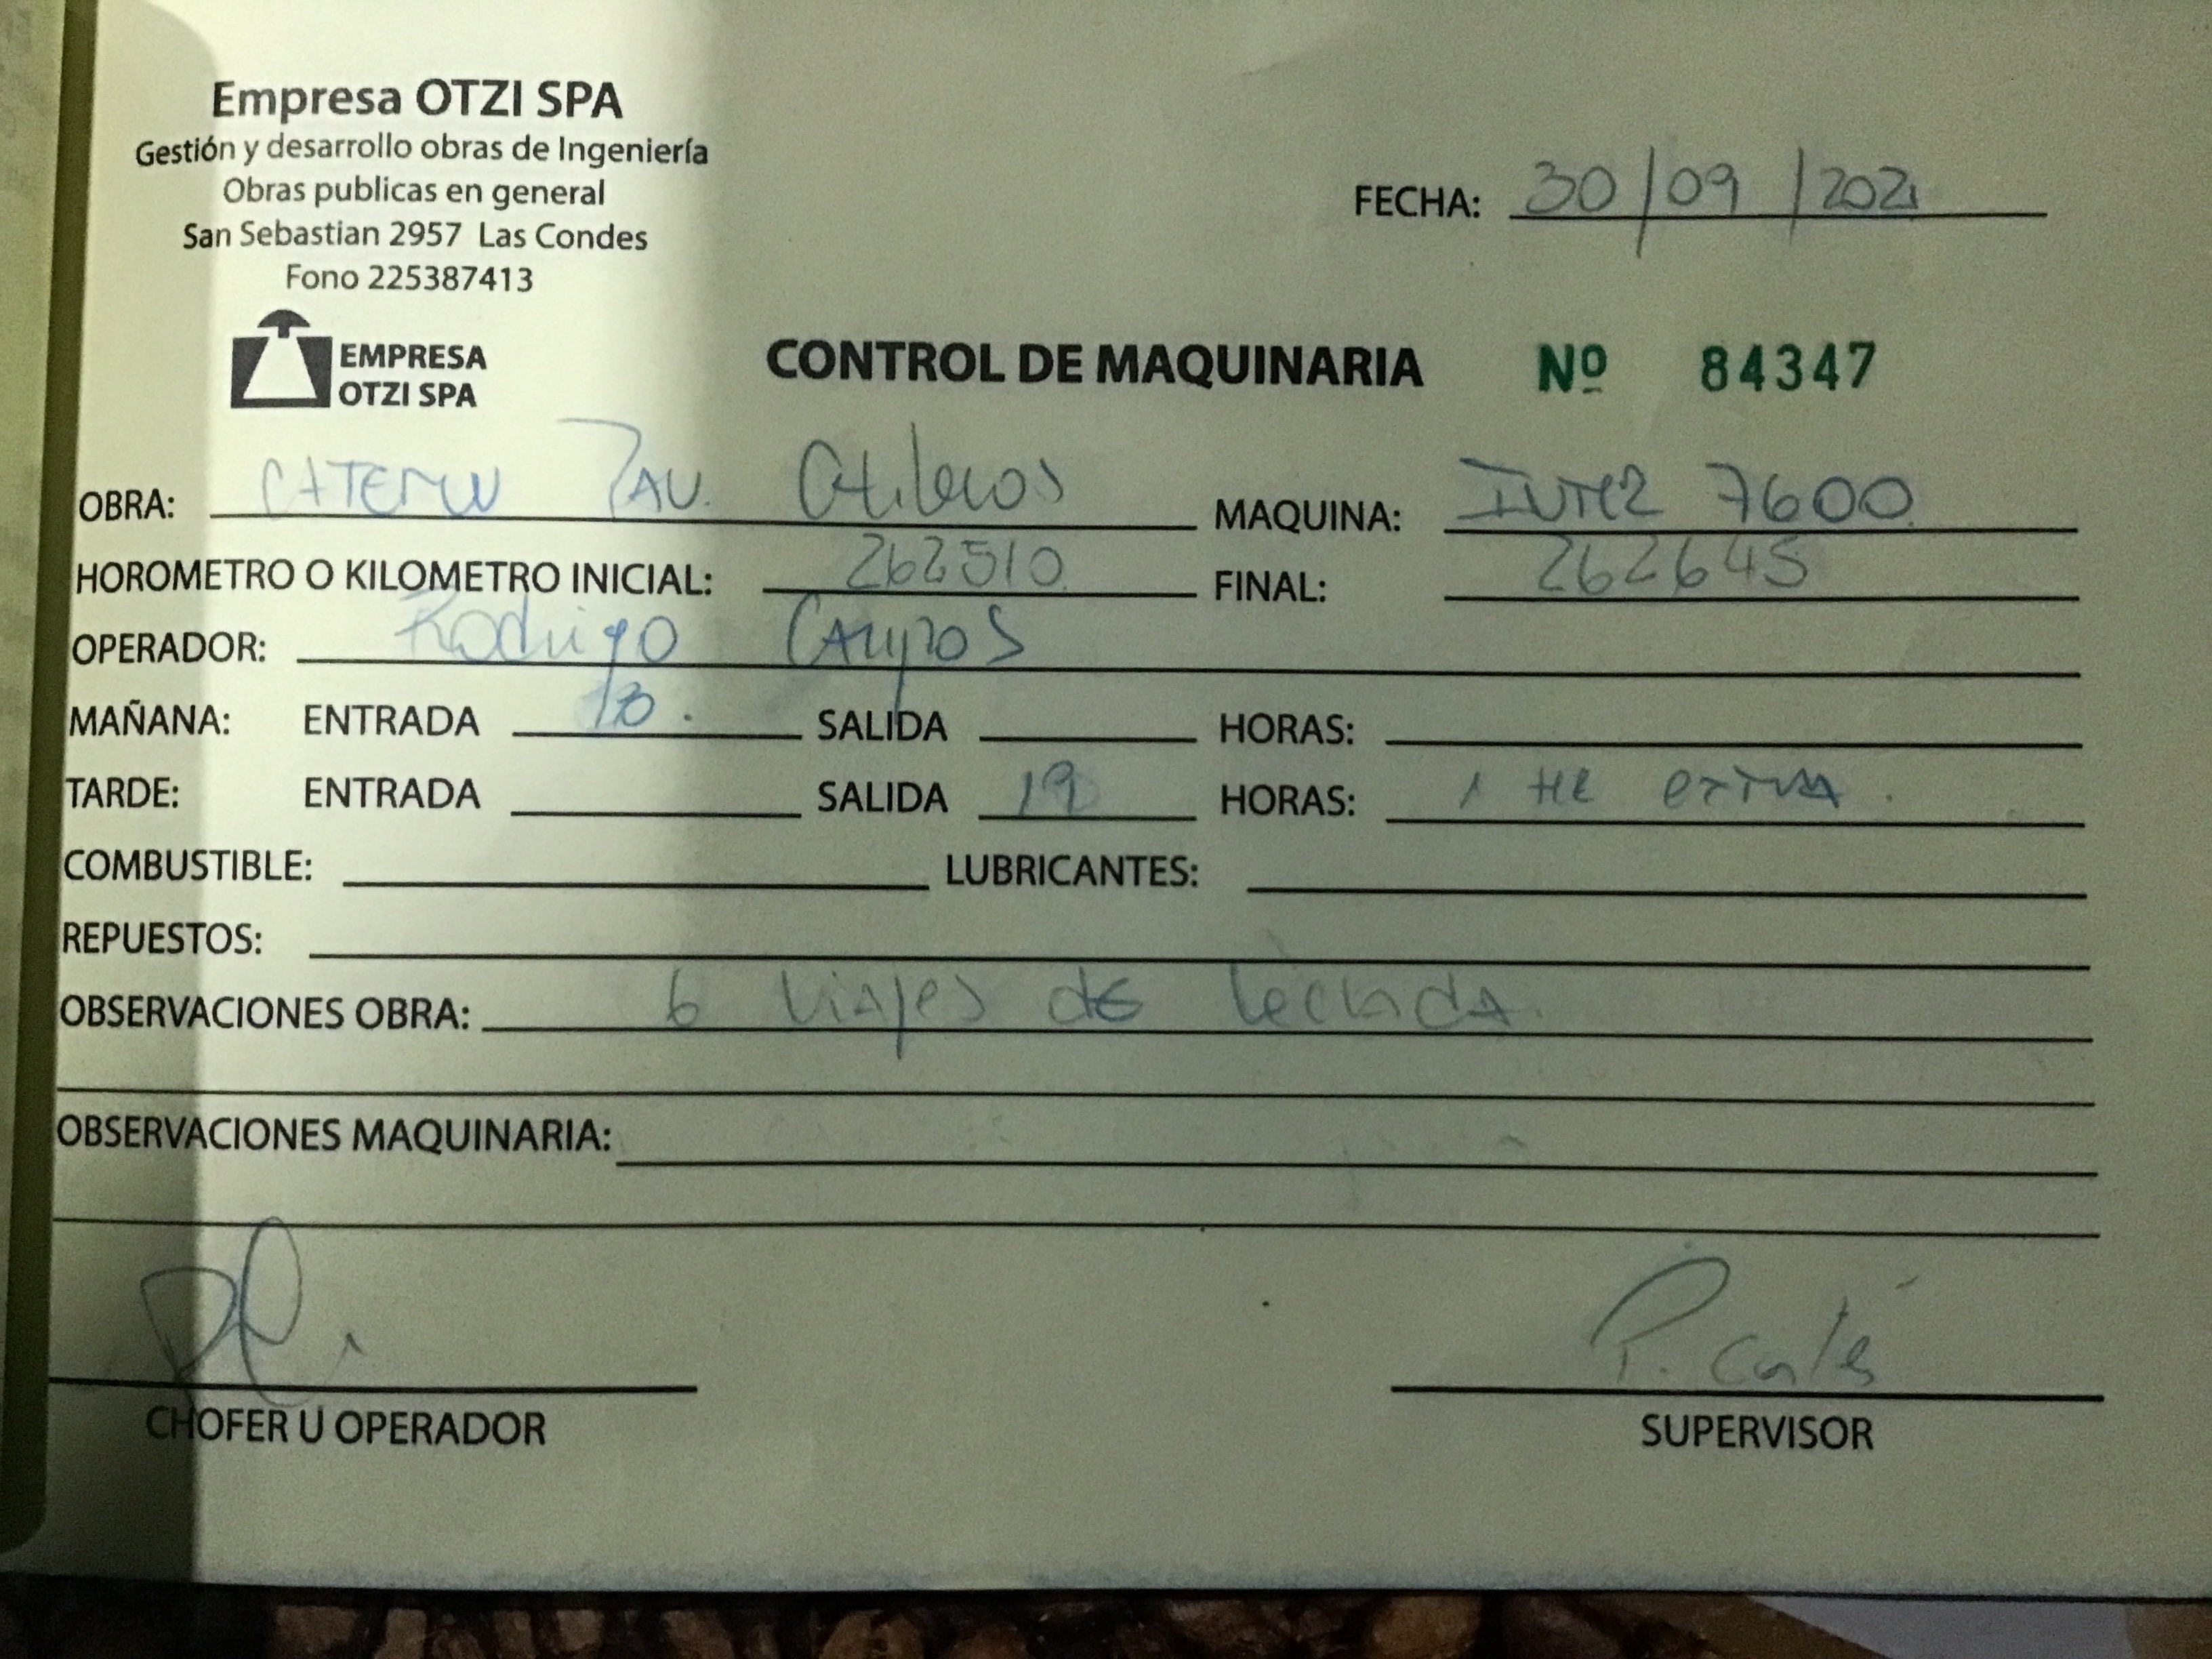 Empresa OTZI SPA
Gestión y desarrollo obras de Ingeniería
Obras publicas en general
San Sebastian 2957 Las Condes
Fono 225387413
FECHA: 30/09/2021
EMPRESA
OTZI SPA
CONTROL DE MAQUINARIA Nº 84347
OBRA: CATEMU PAV. MAQUINA: INTER 7600
HOROMETRO O KILOMETRO INICIAL: 262510 FINAL: 262645
OPERADOR: Rodrigo CAMPOS
MAÑANA: ENTRADA SALIDA HORAS:
TARDE: ENTRADA SALIDA 19 HORAS: 1 HR extra.
COMBUSTIBLE: LUBRICANTES:
REPUESTOS:
OBSERVACIONES OBRA: 6 viajes de lechada.
OBSERVACIONES MAQUINARIA:
P. Cortés
CHOFER U OPERADOR SUPERVISOR